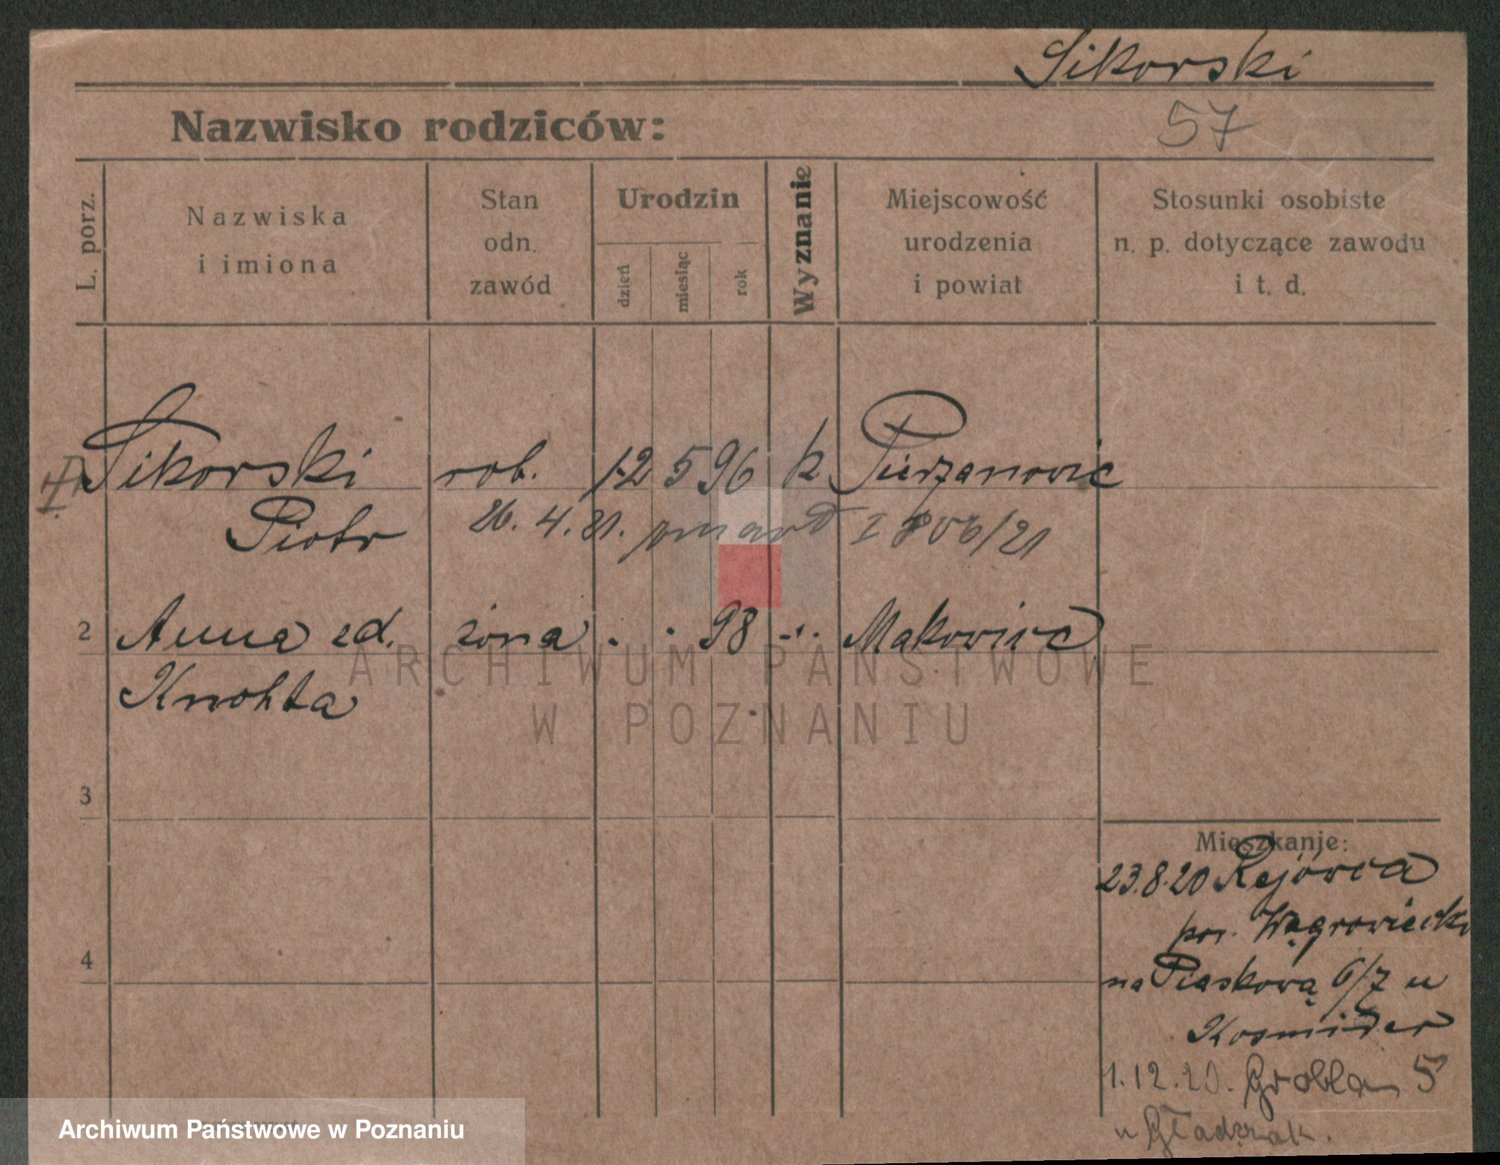 Sikorski
Nazwisko rodziców: 57
L. porz.
Nazwiska
i imiona
Stan
odn.
zawód
Urodzin
dzień
miesiąc
rok
Wyznanie
Miejscowość
urodzenia
i powiat
Stosunki osobiste
n. p. dotyczące zawodu
i t. d.
Sikorski rob. 12 5 96 k Pierzanowic
Piotr 26. 4. 21. zmarł I 806/21
2 Anna zd. żona 98 Makowice
Knohta
3
4
Mieszkanje:
23.8.20 Rejówca
pow. Wągrowiecki
na Piaskową 6/7 u
Kosmider
1.12.20. Grobla 5
u Gładziak.
ARCHIWUM PAŃSTWOWE
W POZNANIU
Archiwum Państwowe w Poznaniu